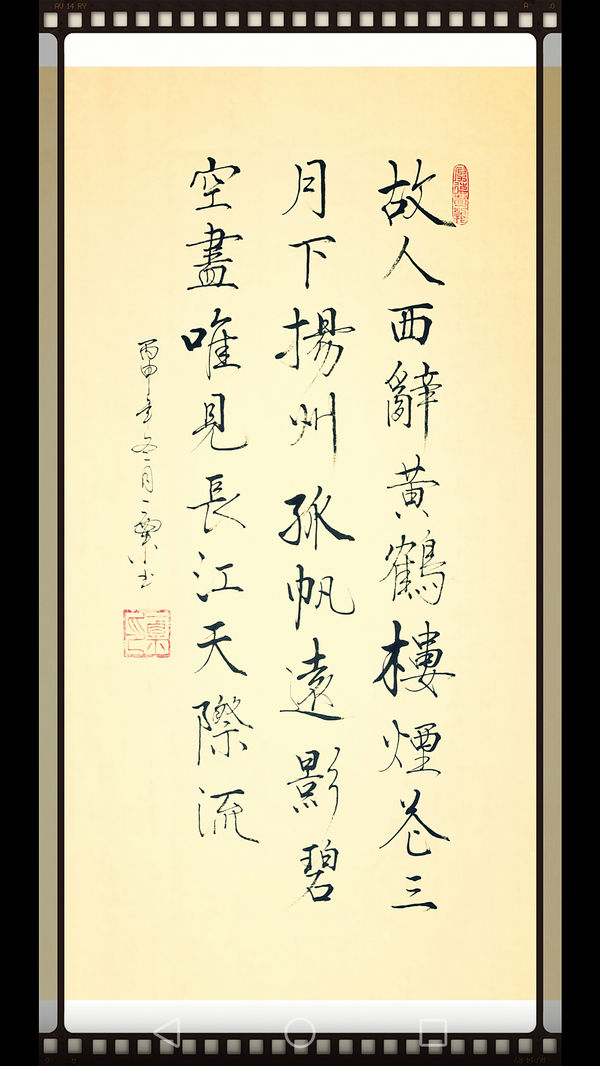 故人西辭黄鶴樓煙花三
月下揚州孤帆遠影碧
空盡唯見長江天際流
丙申年冬月一粟书